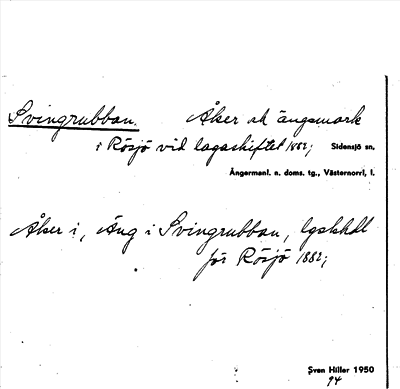 Svingrubban. Åker ok ängsmark
i Rösjö vid lagaskiftet 1882; Sidensjö sn.
Ångermanl. n. doms. tg., Västernorrl, l.
Åker i, Äng i Svingrubban, lgskhdl
för Rösjö 1882;
Sven Hiller 1950
94